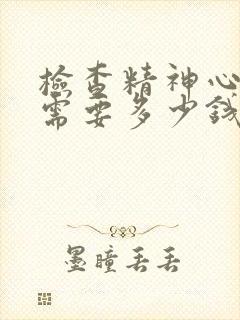 檢查精神心
需要多少錢
墨瞳丢丢